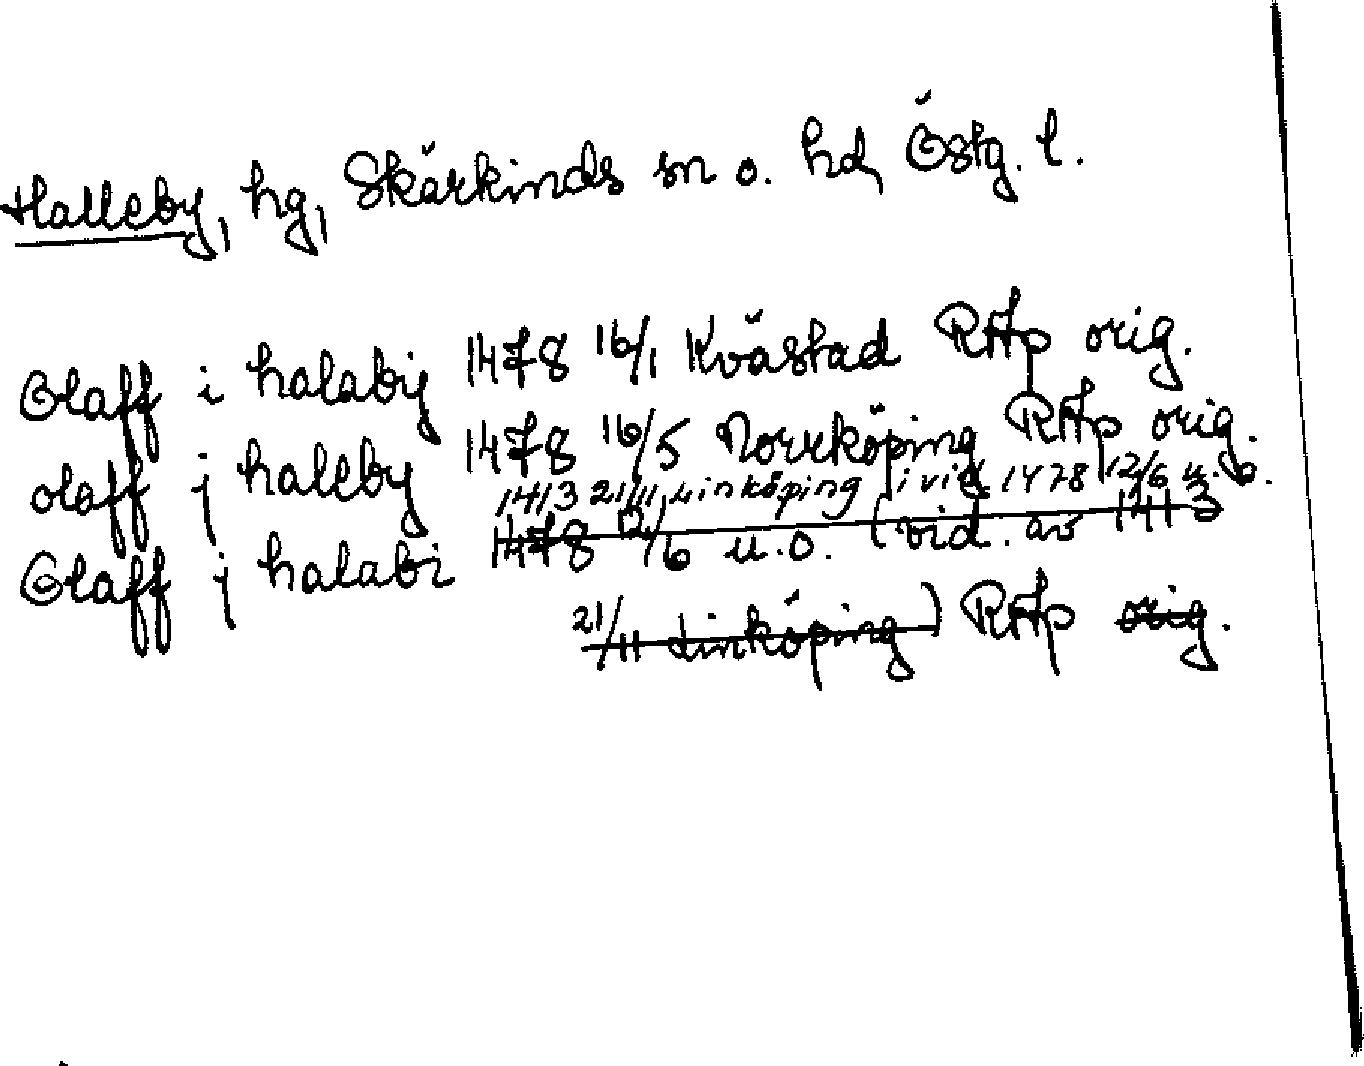 Halleby, hg, Skärkinds sn o. hd, Östg. l.
Olaff i halaby 1478 16/1 Kvästad RAp orig.
olaff j halleby 1478 16/5 Norrköping RAp orig.
1413 21/11 Linköping i vid. 1478 12/6 u. o.
Olaff j halabi 1478 12/6 u.o. (vid. av 1413
21/11 Linköping) RAp orig.